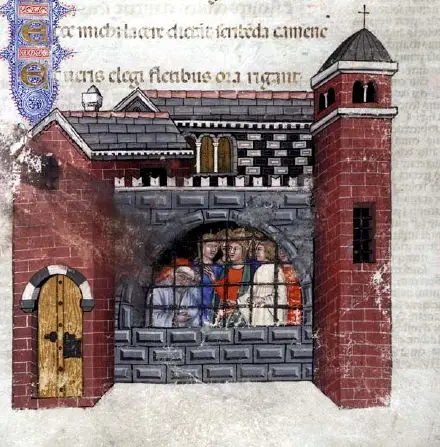 Ecce michi lacere dictãt scribẽda camene
Et ueris elegi fletibus ora rigant